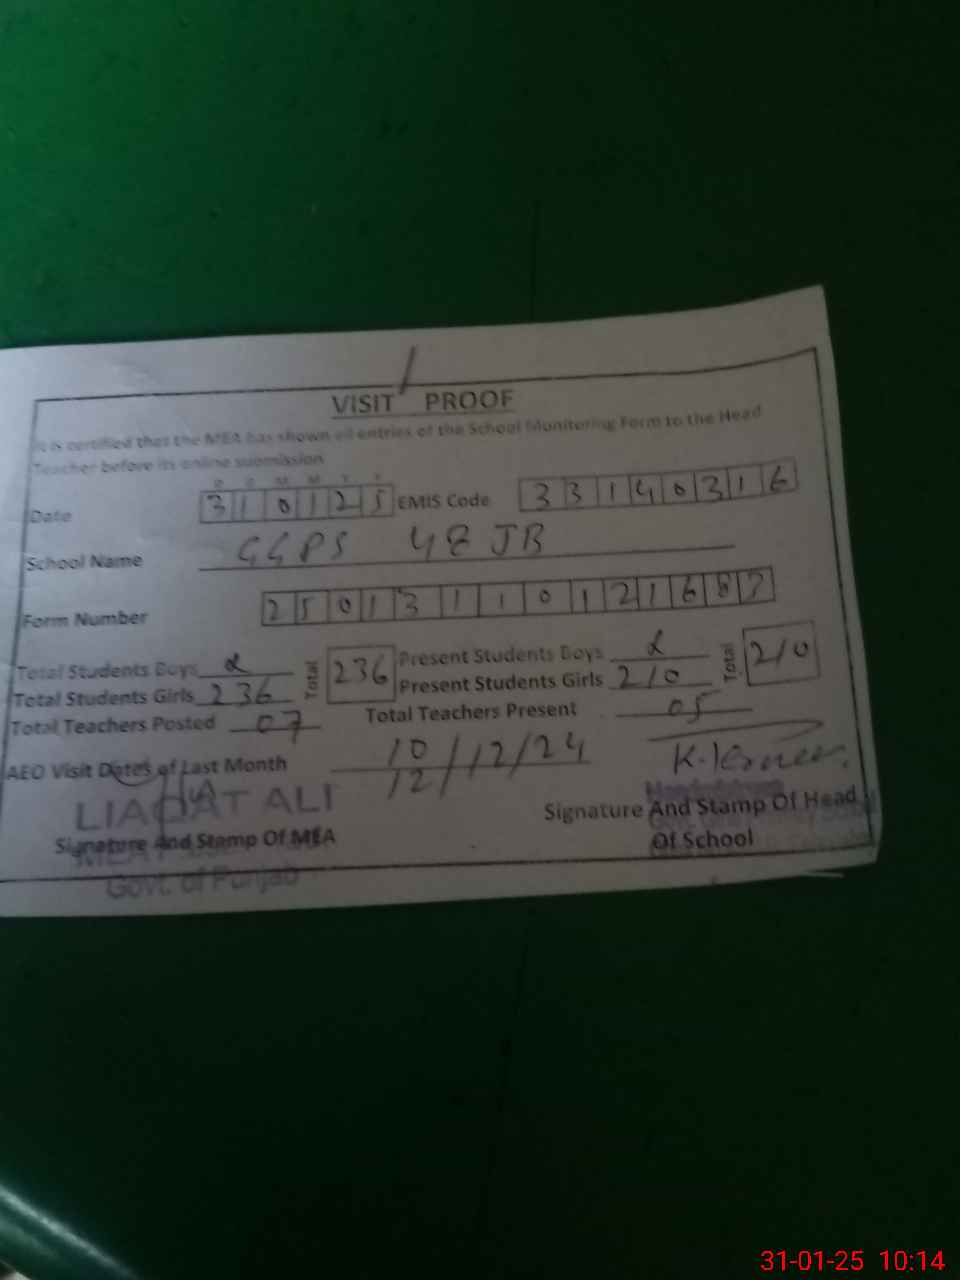 VISIT PROOF
It is certified that the MEA has shown all entries of the School Monitoring Form to the Head
Teacher before its online submission
D D M M Y Y
Date 310125 EMIS Code 33140316
School Name GGPS 48 JB
Form Number 25013110121687
Total Students Boys Total 236 Present Students Boys Total 210
Total Students Girls 236 Present Students Girls 210
Total Teachers Posted 07 Total Teachers Present 05
AEO Visit Dates of Last Month 10/12/24
12
LIAQAT ALI
Signature And Stamp Of MEA
Govt. of Punjab
Signature And Stamp Of Head
Of School
31-01-25 10:14